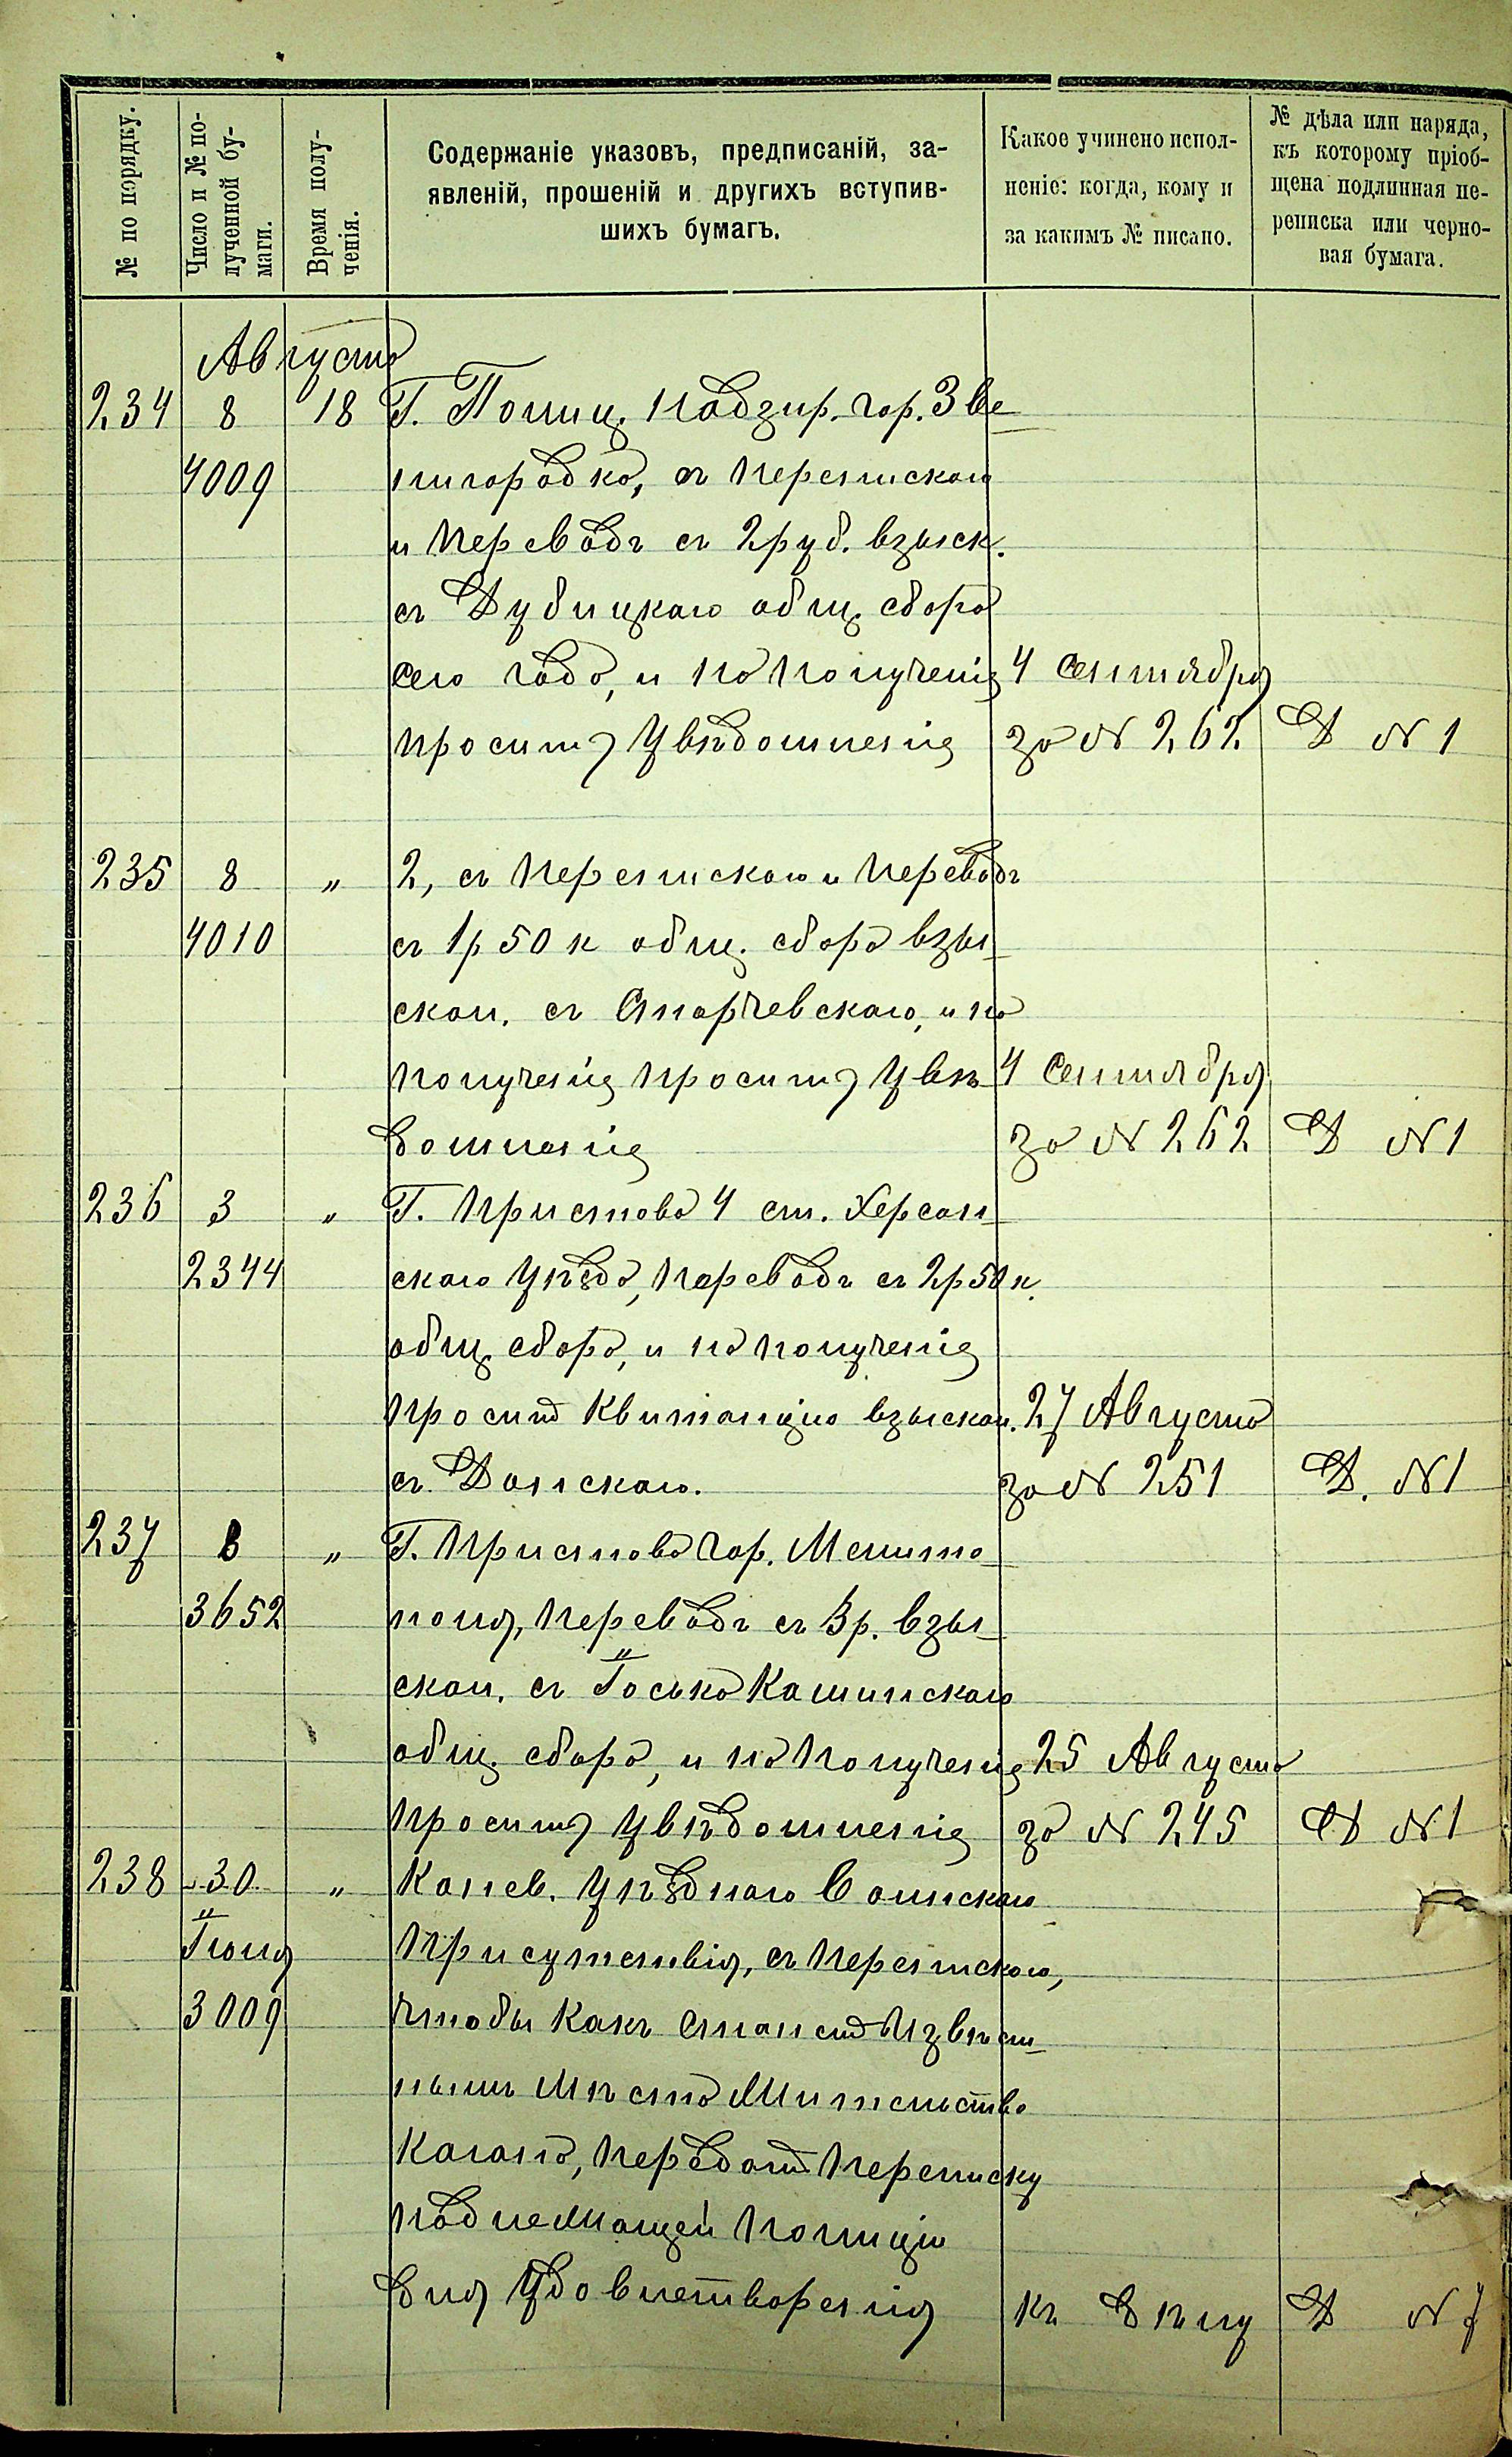 № по порядку.
Число и № по-
лученной бу-
маги.
Время полу-
ченія.
Содержаніе указовъ, предписаній, за-
явленій, прошеній и другихъ вступив-
шихъ бумагъ.
Какое учинено испол-
неніе: когда, кому и
за какимъ № писано.
№ дѣла или наряда,
къ которому пріоб-
щена подлинная пе-
реписка или черно-
вая бумага.
Августа
234 8 18 Г. Полиц. Надзир. гор. Зве-
4009 нигородка, съ перепискою
и переводъ съ 2 руб. взыск.
съ Дубицкаго общ. сбора
сего года, и по полученіе 4 Сентября
проситъ увѣдомленіе за № 262 Д № 1
235 8 „ 2, съ перепискою и переводъ
4010 съ 1 р 50 к общ. сбора взы-
скан. съ Старчевскаго, и по
полученіе проситъ увѣ- 4 Сентября
домленіе за № 262 Д № 1
236 3 „ Г. Пристава 4 ст. Херсон-
2344 скаго уѣзда, переводъ съ 2 р 50 к.
общ. сбора, и по полученіе
проситъ квитанцію взыскан. 27 Августа
съ Донскаго. за № 251 Д. № 1
237 8 „ Г. Пристава гор. Мелито-
3652 поля, переводъ съ 3 р. взы-
скан. съ Іоська Кашинскаго
общ. сбора, и по полученіе 25 Августа
проситъ увѣдомленіе за № 245 Д № 1
238 30 „ Канев. Уѣзднаго Воинскаго
Іюля Присутствія, съ перепискою,
3009 чтобы какъ станетъ извѣст-
нымъ мѣсто жительство
Кагана, передать переписку
надлежащей полиціи
для удовлетворенія къ дѣлу Д № 7